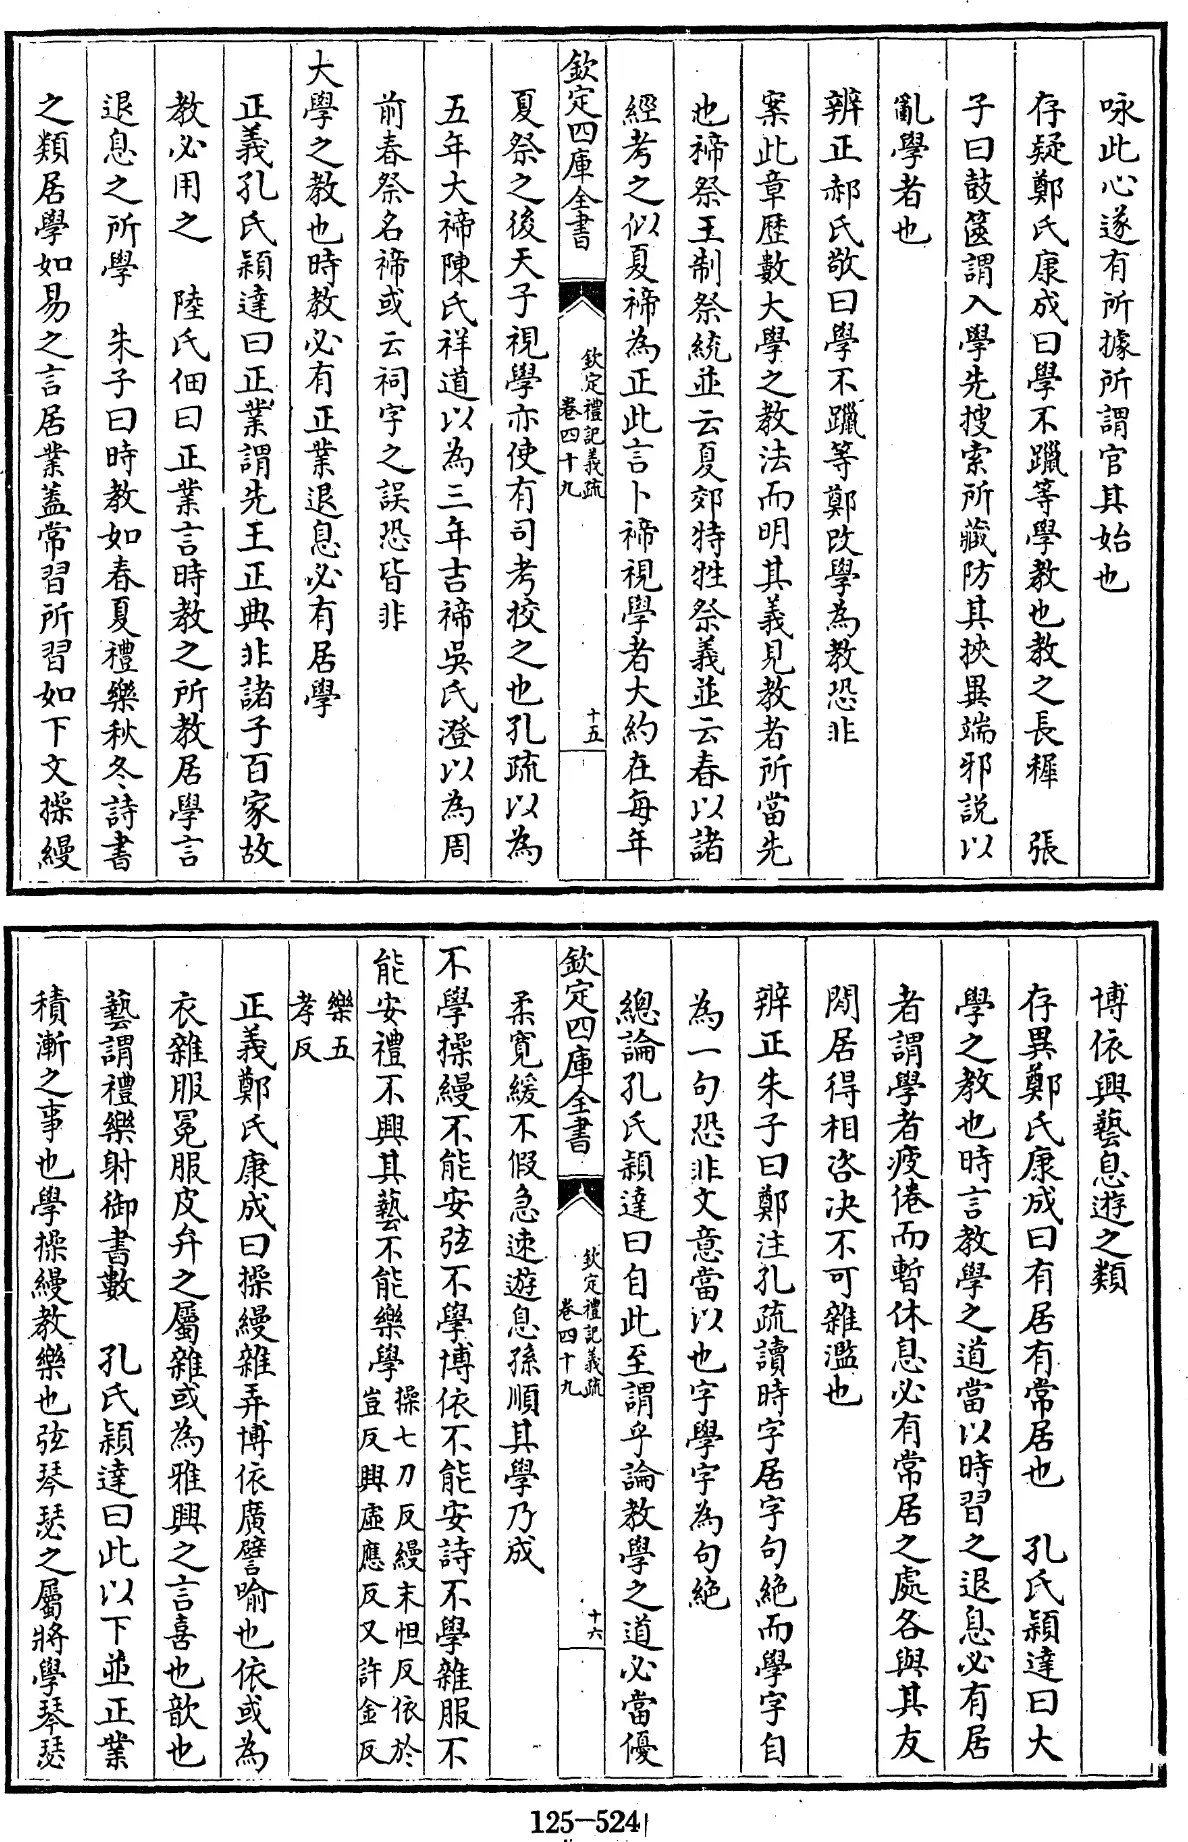 咏此心遂有所據所謂官其始也
存疑鄭氏康成曰學不躐等學教也教之長穉 張
子曰鼓篋謂入學先搜索所藏防其挾異端邪説以
亂學者也
辨正郝氏敬曰學不躐等鄭改學為教恐非
案此章歴數大學之教法而明其義見教者所當先
也禘祭王制祭統並云夏郊特牲祭義並云春以諸
經考之似夏禘為正此言卜禘視學者大約在每年
欽定四庫全書
欽定禮記義疏
卷四十九
十五
夏祭之後天子視學亦使有司考校之也孔疏以為
五年大禘陳氏祥道以為三年吉禘吳氏澄以為周
前春祭名禘或云祠字之誤恐皆非
大學之教也時教必有正業退息必有居學
正義孔氏穎達曰正業謂先王正典非諸子百家故
教必用之 陸氏佃曰正業言時教之所教居學言
退息之所學 朱子曰時教如春夏禮樂秋冬詩書
之類居學如易之言居業蓋常習所習如下文操縵
博依興藝息遊之類
存異鄭氏康成曰有居有常居也 孔氏穎達曰大
學之教也時言教學之道當以時習之退息必有居
者謂學者疲倦而暫休息必有常居之處各與其友
閒居得相咨決不可雜濫也
辨正朱子曰鄭注孔疏讀時字居字句絶而學字自
為一句恐非文意當以也字學字為句絶
總論孔氏穎達曰自此至謂乎論教學之道必當優
欽定四庫全書
欽定禮記義疏
卷四十九
十六
柔寛緩不假急速遊息孫順其學乃成
不學操縵不能安弦不學博依不能安詩不學雜服不
能安禮不興其藝不能樂學
操七刀反縵末怛反依於
豈反興虛應反又許金反
樂五
孝反
正義鄭氏康成曰操縵雜弄博依廣譬喻也依或為
衣雜服冕服皮弁之屬雜或為雅興之言喜也歆也
藝謂禮樂射御書數 孔氏穎達曰此以下並正業
積漸之事也學操縵教樂也弦琴瑟之屬將學琴瑟
125-524